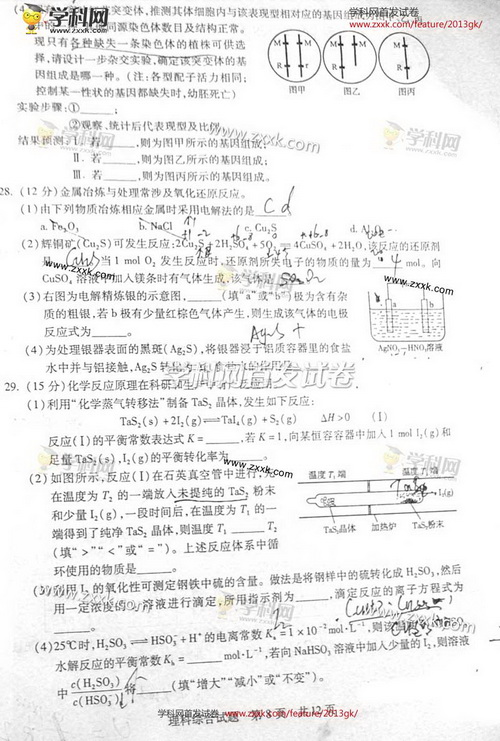 学科网首发试卷 www.zxxk.com/feature/2013gk/
突变体,推测其体细胞内与该表现型相对应的基因组成
同源染色体数目及结构正常。
现只有各种缺失一条染色体的植株可供选
择,请设计一步杂交实验,确定该突变体的基
因组成是哪一种。(注:各型配子活力相同;
控制某一性状的基因都缺失时,幼胚死亡)
M M M M
R r R r
图甲 图乙 图丙
实验步骤:①______;
②观察、统计后代表现型及比例
结果预测:Ⅰ. 若______,则为图甲所示的基因组成;
Ⅱ. 若______,则为图乙所示的基因组成;
Ⅲ. 若______,则为图丙所示的基因组成。
学科网 www.zxxk.com
28. (12 分)金属冶炼与处理常涉及氧化还原反应。
(1)由下列物质冶炼相应金属时采用电解法的是 Cd
a. Fe₂O₃ b. NaCl c. Cu₂S d.
(2)辉铜矿(Cu₂S)可发生反应:2Cu₂S+2H₂SO₄+5O₂══4CuSO₄+2H₂O,该反应的还原剂
是 当 1 mol O₂ 发生反应时,还原剂所失电子的物质的量为 4 mol。向
CuSO₄ 溶液中加入镁条时有气体生成,该气体是
(3)右图为电解精炼银的示意图,______(填“a”或“b”)极为含有杂
质的粗银,若 b 极有少量红棕色气体产生,则生成该气体的电极
反应式为______。
a b
AgNO₃—HNO₃溶液
(4)为处理银器表面的黑斑(Ag₂S),将银器浸于铝质容器里的食盐
水中并与铝接触,Ag₂S转化为
学科网首发试卷
29. (15 分)化学反应原理在科研
(1)利用“化学蒸气转移法”制备 TaS₂ 晶体,发生如下反应:
TaS₂(s)+2I₂(g)⇌TaI₄(g)+S₂(g) ΔH>0 (Ⅰ)
反应(Ⅰ)的平衡常数表达式 K=______,若 K=1,向某恒容容器中加入 1 mol I₂(g)和
足量 TaS₂(s),I₂(g)的平衡转化率为______。
(2)如图所示,反应(Ⅰ)在石英真空管中进行,先
在温度为 T₂ 的一端放入未提纯的 TaS₂ 粉末
和少量 I₂(g),一段时间后,在温度为 T₁ 的一
端得到了纯净 TaS₂ 晶体,则温度 T₁______T₂
(填“>”“<”或“=”)。上述反应体系中循
环使用的物质是______。
温度T₁端 温度T₂端
I₂(g)
TaS₂晶体 加热炉 TaS₂粉末
(3)利用 I₂ 的氧化性可测定钢铁中硫的含量。做法是将钢样中的硫转化成 H₂SO₃,然后
用一定浓度的 I₂ 溶液进行滴定,所用指示剂为______,滴定反应的离子方程式为
______。
(4)25℃时,H₂SO₃⇌HSO₃⁻+H⁺ 的电离常数 Kₐ=1×10⁻²mol·L⁻¹,则该温度
水解反应的平衡常数 Kₕ=______mol·L⁻¹,若向 NaHSO₃ 溶液中加入少量的 I₂,则溶液
中 c(H₂SO₃)/c(HSO₃⁻) 将______(填“增大”“减小”或“不变”)。
理科综合试题 第 8 页 共 12 页
学科网首发试卷 www.zxxk.com/feature/2013gk/